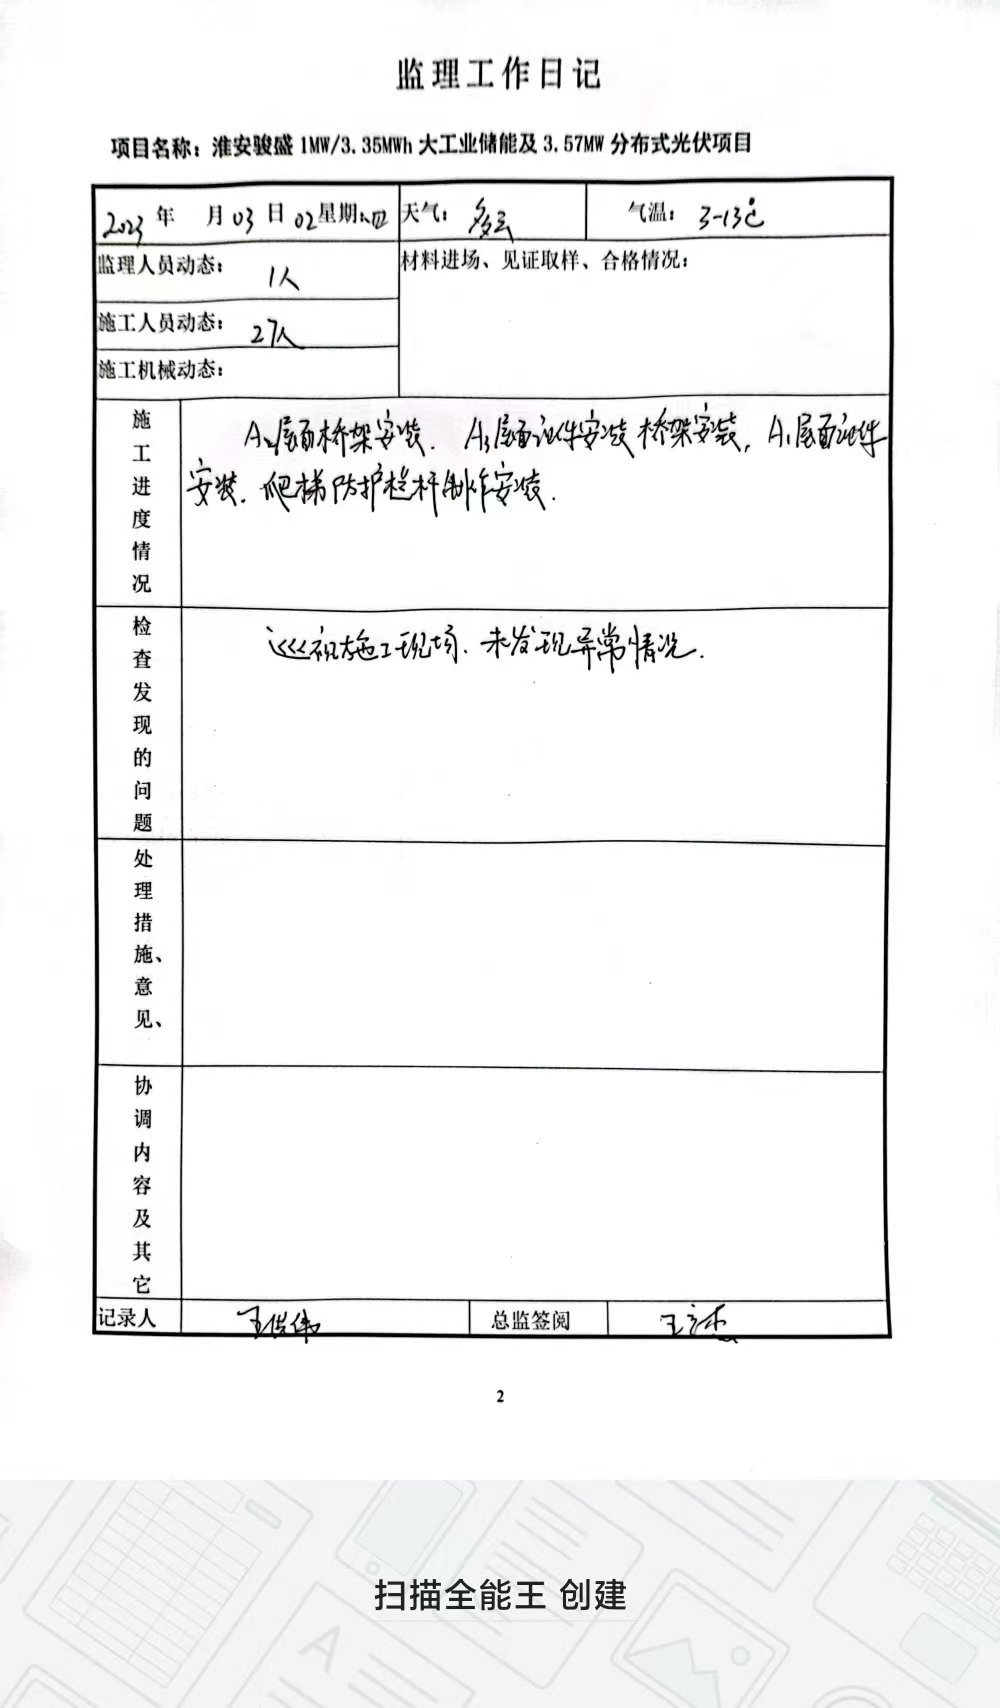 监理工作日记
项目名称：淮安骏盛1MW/3.35MWh大工业储能及3.57MW分布式光伏项目
2023年 月03日02星期:四 天气：多云 气温：3-13℃
监理人员动态：1人 材料进场、见证取样、合格情况：
施工人员动态：27人
施工机械动态：
施工进度情况
A2屋面桥架安装. A3屋面组件安装桥架安装, A1屋面组件
安装. 爬梯防护栏杆制作安装.
检查发现的问题
巡视施工现场. 未发现异常情况.
处理措施、意见、
协调内容及其它
记录人 王 伟 总监签阅 王 杰
2
扫描全能王 创建